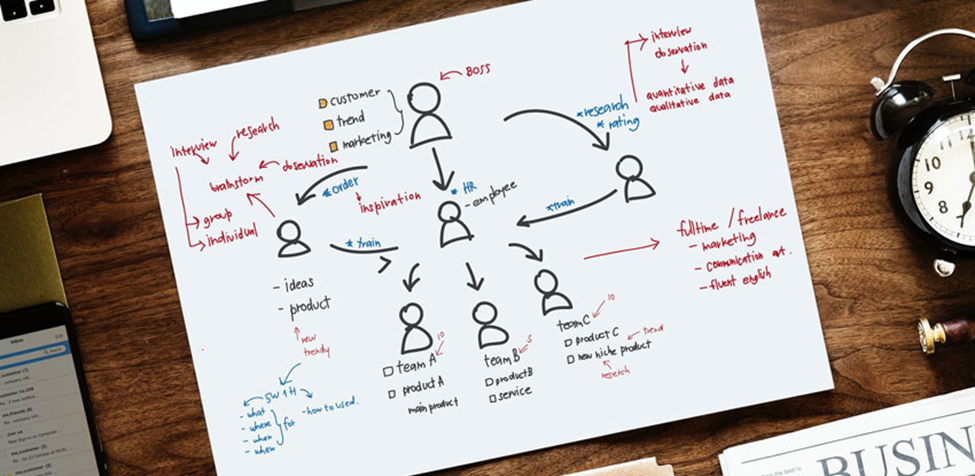 BOSS
customer
trend
marketing
interview
observation
quantitative data
qualitative data
*research
*rating
Interview
research
observation
brainstorm
group
individual
*order
inspiration
* HR
- employee
*train
*train
- ideas
- product
new
trendy
fulltime / freelance
- marketing
- communication
- fluent english
10
team A
product A
main product
5
team B
product B
service
10
team C
product C
trend
new niche product
research
5W1H
- what
- where
- when
for
- how to used.
Inbox
10
9
8
7
6
BUSIN